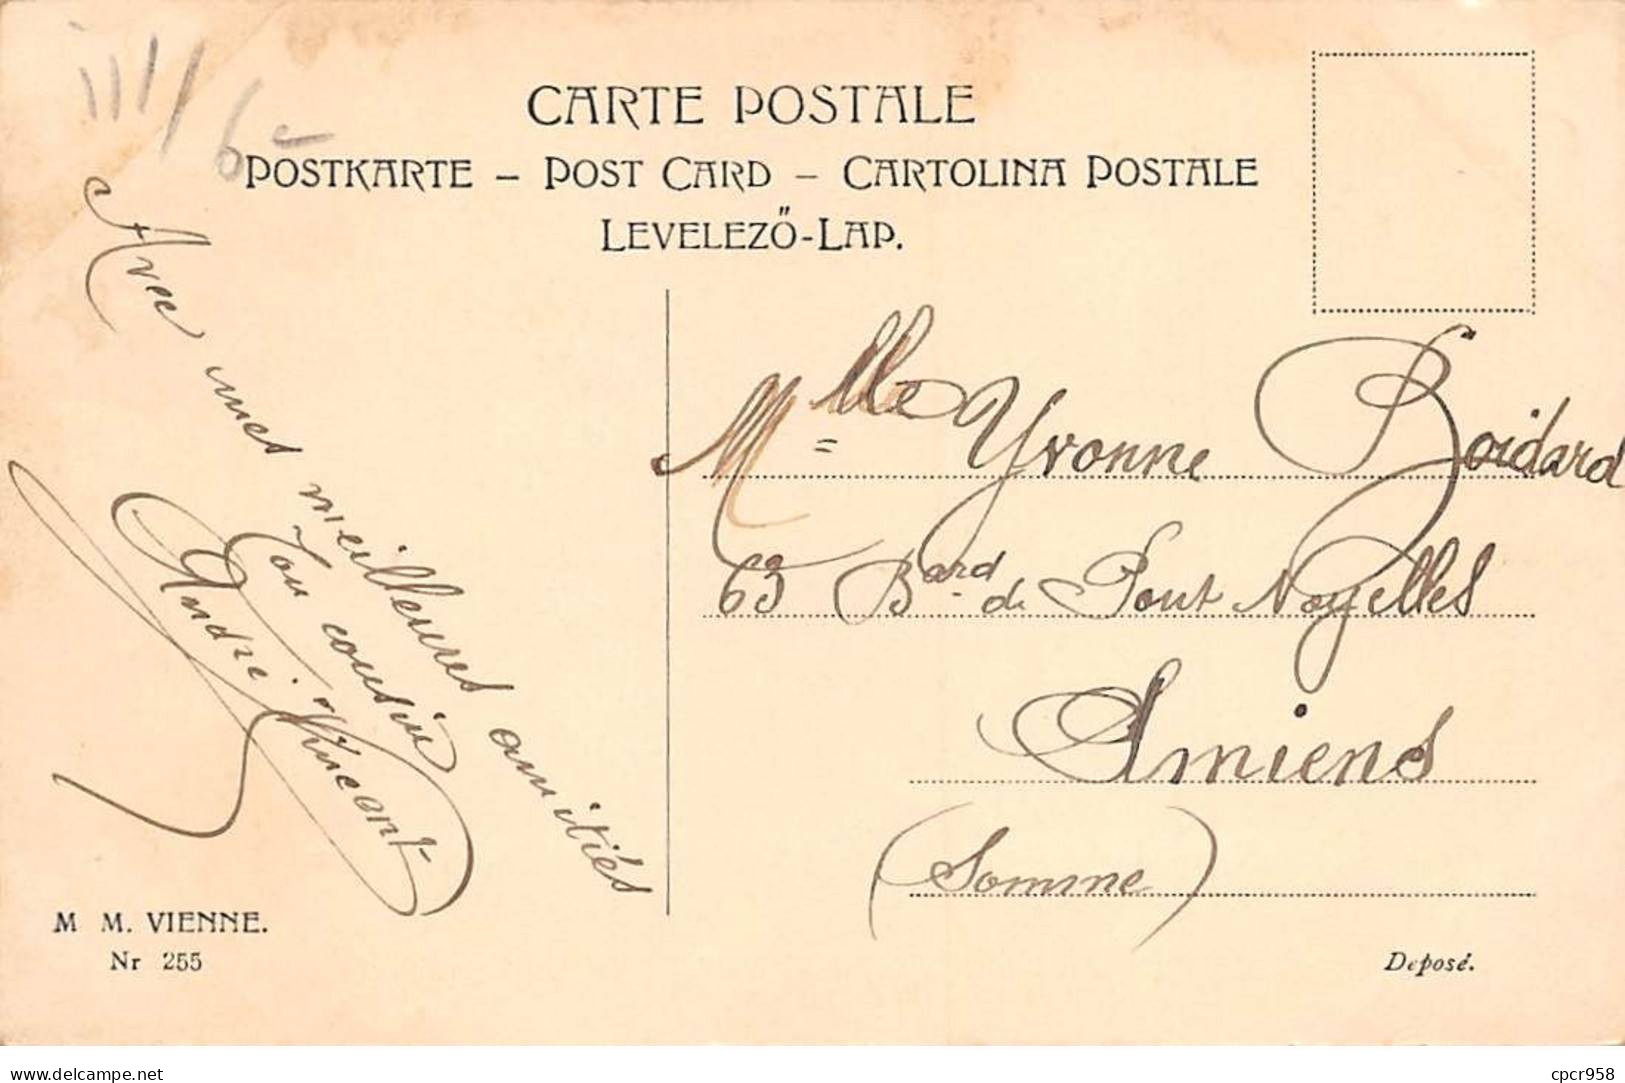 CARTE POSTALE
POSTKARTE – POST CARD – CARTOLINA POSTALE
LEVELEZŐ-LAP.
Avec mes meilleures amitiés
Ton cousin
André Vincent
Mlle Yvonne Boidard
63 Bard de Pont Noyelles
Amiens
(Somme)
M M. VIENNE.
Nr 255
Deposé.
www.delcampe.net
cpcr958